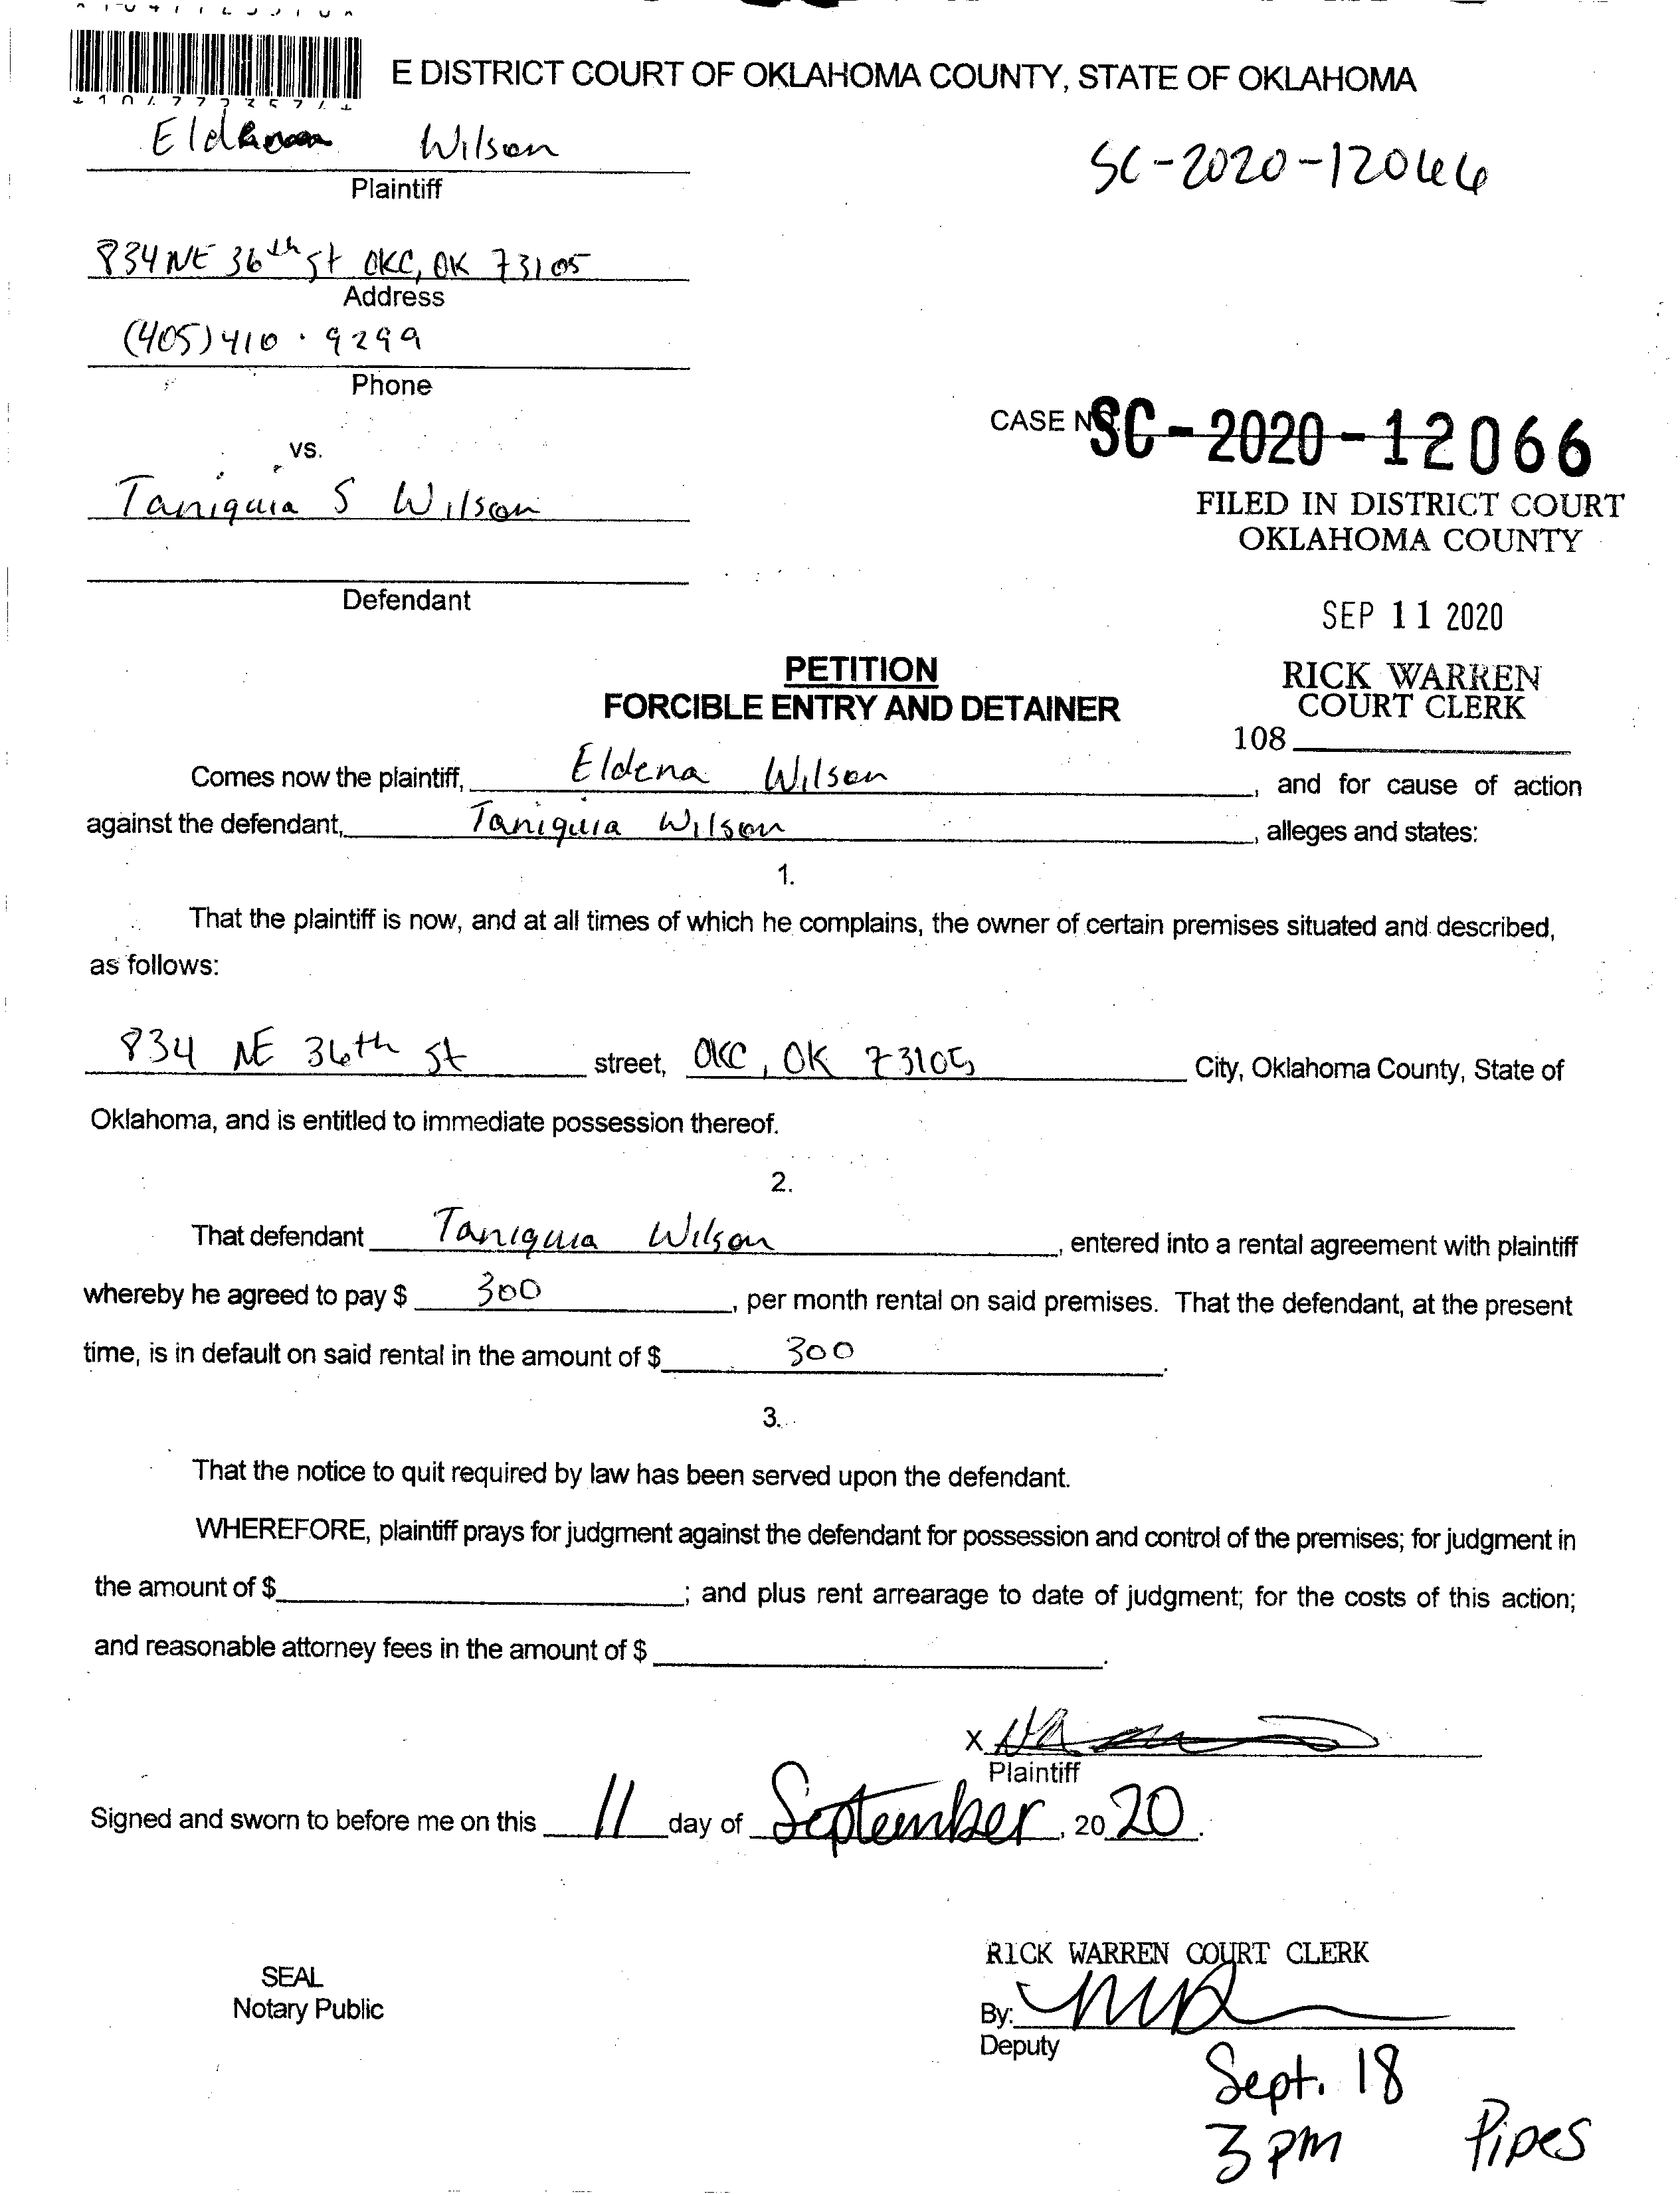 E DISTRICT COURT OF OKLAHOMA COUNTY, STATE OF OKLAHOMA
Wilson
Plaintiff
SC-2020-12066
834 NE 36th St OKC, OK 73105
Address
(405) 410 · 9299
Phone
CASE NO. SC-2020-12066
vs.
FILED IN DISTRICT COURT
OKLAHOMA COUNTY
Taniquia S Wilson
Defendant
SEP 11 2020
PETITION
FORCIBLE ENTRY AND DETAINER
RICK WARREN
COURT CLERK
108
Comes now the plaintiff, Eldena Wilson, and for cause of action
against the defendant, Taniquia Wilson, alleges and states:
1.
That the plaintiff is now, and at all times of which he complains, the owner of certain premises situated and described,
as follows:
834 NE 36th St street, OKC, OK 73105 City, Oklahoma County, State of
Oklahoma, and is entitled to immediate possession thereof.
2.
That defendant Taniquia Wilson, entered into a rental agreement with plaintiff
whereby he agreed to pay $ 300, per month rental on said premises. That the defendant, at the present
time, is in default on said rental in the amount of $ 300.
3.
That the notice to quit required by law has been served upon the defendant.
WHEREFORE, plaintiff prays for judgment against the defendant for possession and control of the premises; for judgment in
the amount of $ ; and plus rent arrearage to date of judgment; for the costs of this action;
and reasonable attorney fees in the amount of $ .
X
Plaintiff
Signed and sworn to before me on this 11 day of September, 2020.
RICK WARREN COURT CLERK
SEAL
Notary Public
By:
Deputy
Sept. 18
3 pm Pipes